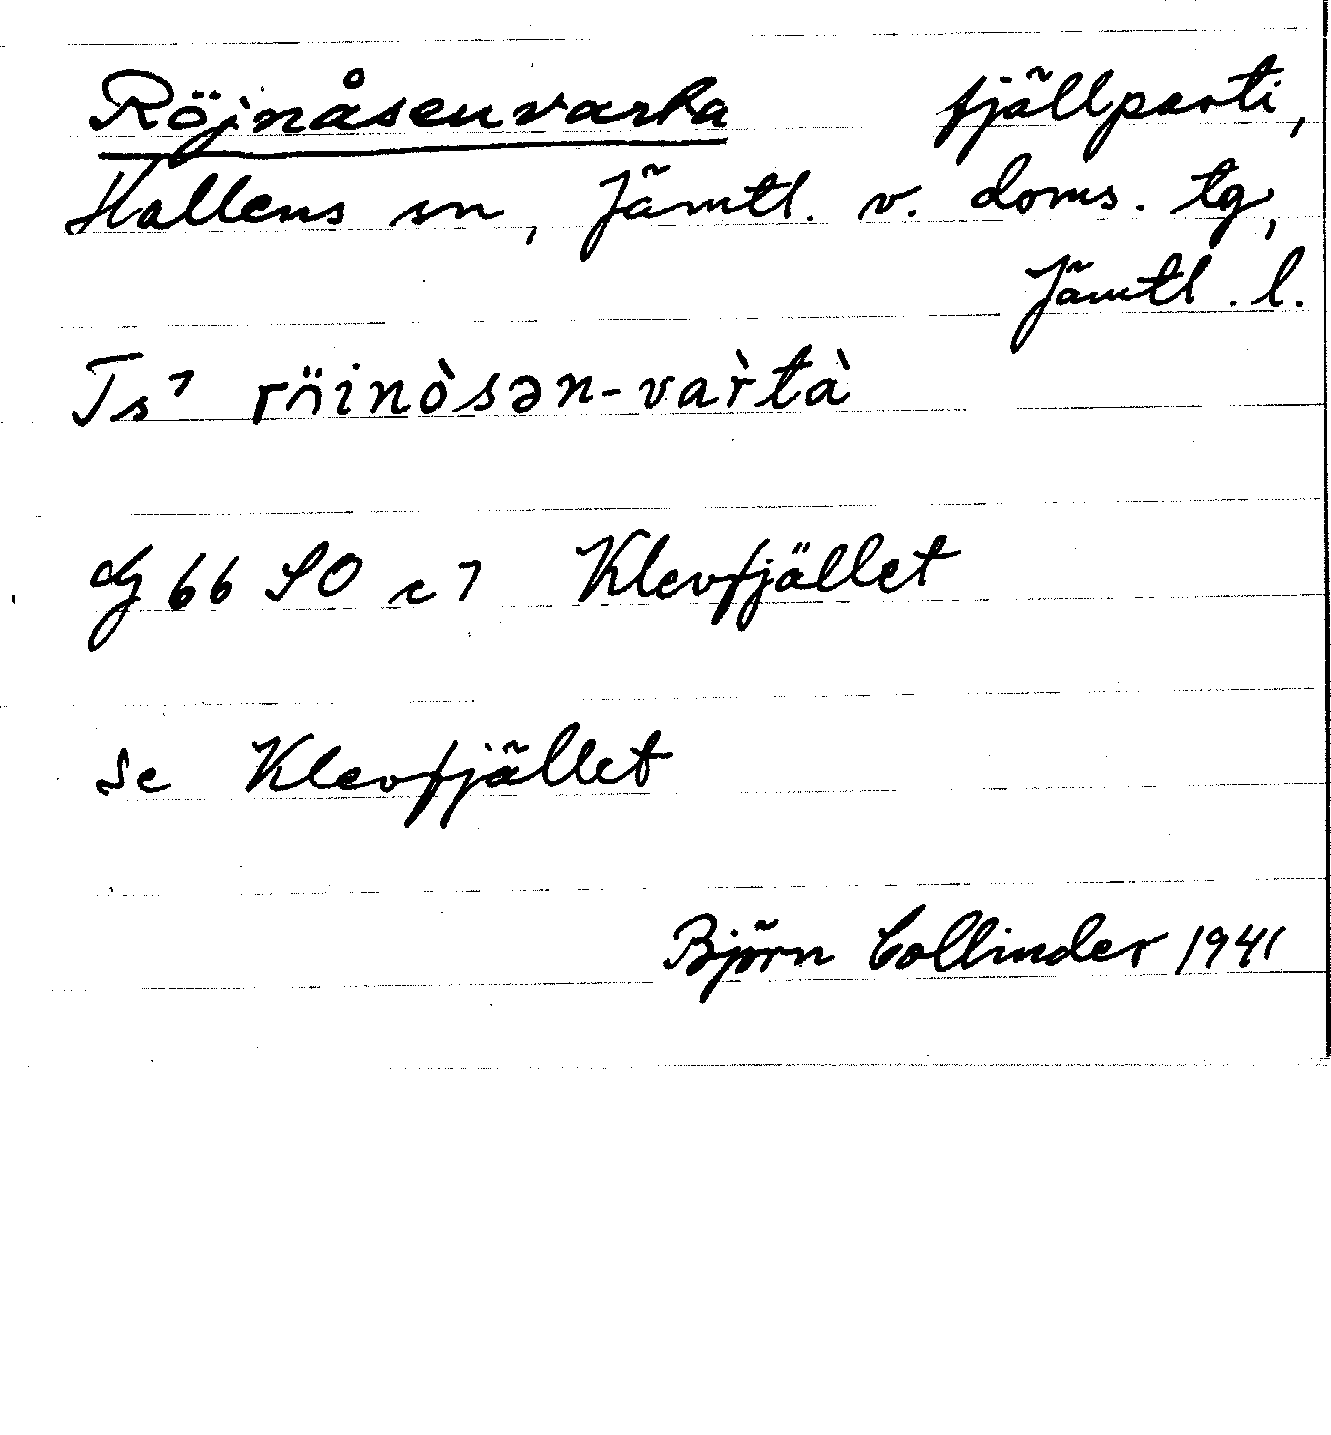 Röjnåsenvarta fjällparti,
Hallens sn, Jämtl. v. doms. tg,
Jämtl. l.
Ts⁷ röinòsən-var̀tà
G 66 SO c 7 Klevfjället
se Klevfjället
Björn Collinder 1941